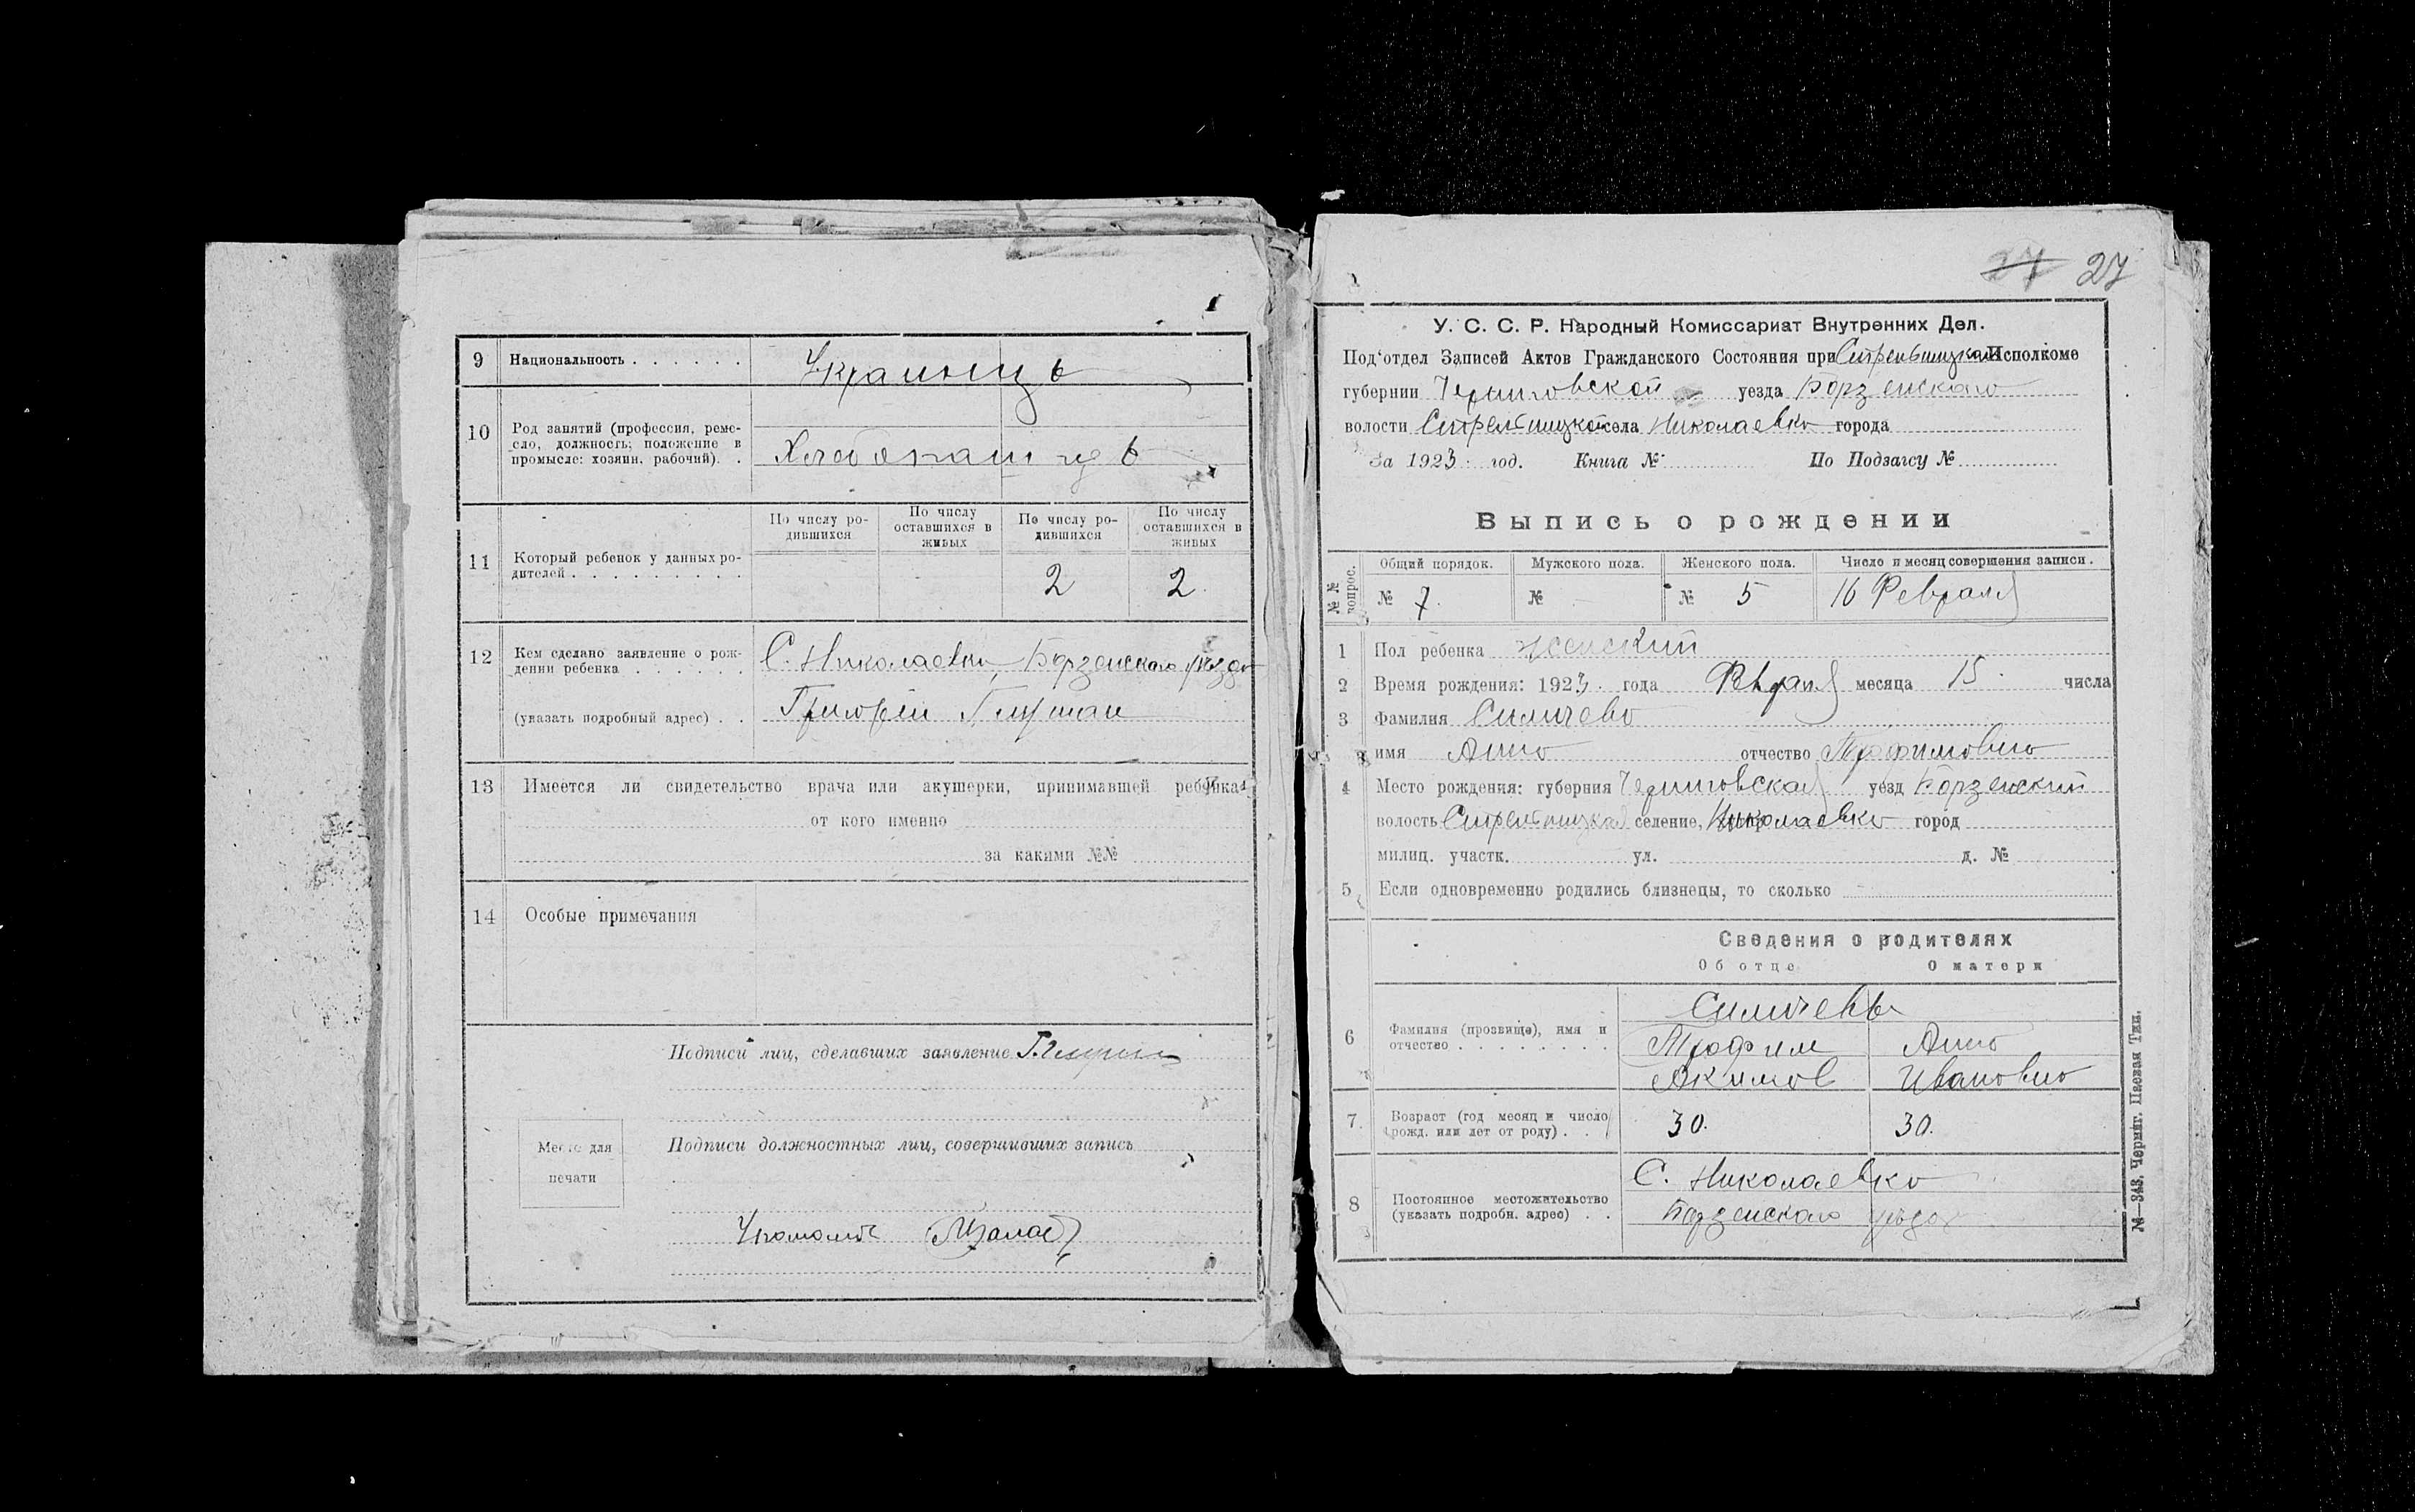 9 Национальность . . . . . . Украинцы
10 Род занятий (профессия, реме-
сло, должность; положение в
промысле: хозяин, рабочий). .
Хлебопашцы
11 Который ребенок у данных ро-
дителей . . . . . . . . .
По числу ро-
дившихся
По числу
оставшихся в
живых
По числу ро-
дившихся
По числу
оставшихся в
живых
2 2.
12 Кем сделано заявление о рож-
дении ребенка . . . . . .
(указать подробный адрес) . .
С. Николаевка, Борзенскаго уезда
Григорій
13 Имеется ли свидетельство врача или акушерки, принимавшей ребенка
от кого именно
за какими №№
14 Особые примечания
Подписи лиц, сделавших заявление
Место для
печати
Подписи должностных лиц, совершивших запись
27 27
У. С. С. Р. Народный Комиссариат Внутренних Дел.
Под'отдел Записей Актов Гражданского Состояния при Исполкоме
губернии Черниговской уезда Борзенскаго
волости села Николаевка города
За 1923 год. Книга № По Подзагсу №
Выпись о рождении
№№ вопрос.
Общий порядок. Мужского пола. Женского пола. Число и месяц совершения записи.
№ 7. № — № 5 16 Февраля
1 Пол ребенка женский
2 Время рождения: 1923. года Февраля месяца 15. числа
3 Фамилия Силичева
имя Анна отчество Трофимовна
4 Место рождения: губерния Черниговская уезд Борзенский
волость селение, Николаевка город
милиц. участк. ул. д. №
5 Если одновременно родились близнецы, то сколько
Сведения о родителях
Об отце О матери
6 Фамилия (прозвище), имя и
отчество . . . . . . . .
Силичевы
Трофим Анна
Акимов Ивановна
7 Возраст (год месяц и число
рожд. или лет от роду) . . .
30. 30.
8 Постоянное местожительство
(указать подробн. адрес) . .
С. Николаевка
Борзенскаго уезда
№—343. Черниг. Паевая Тип.